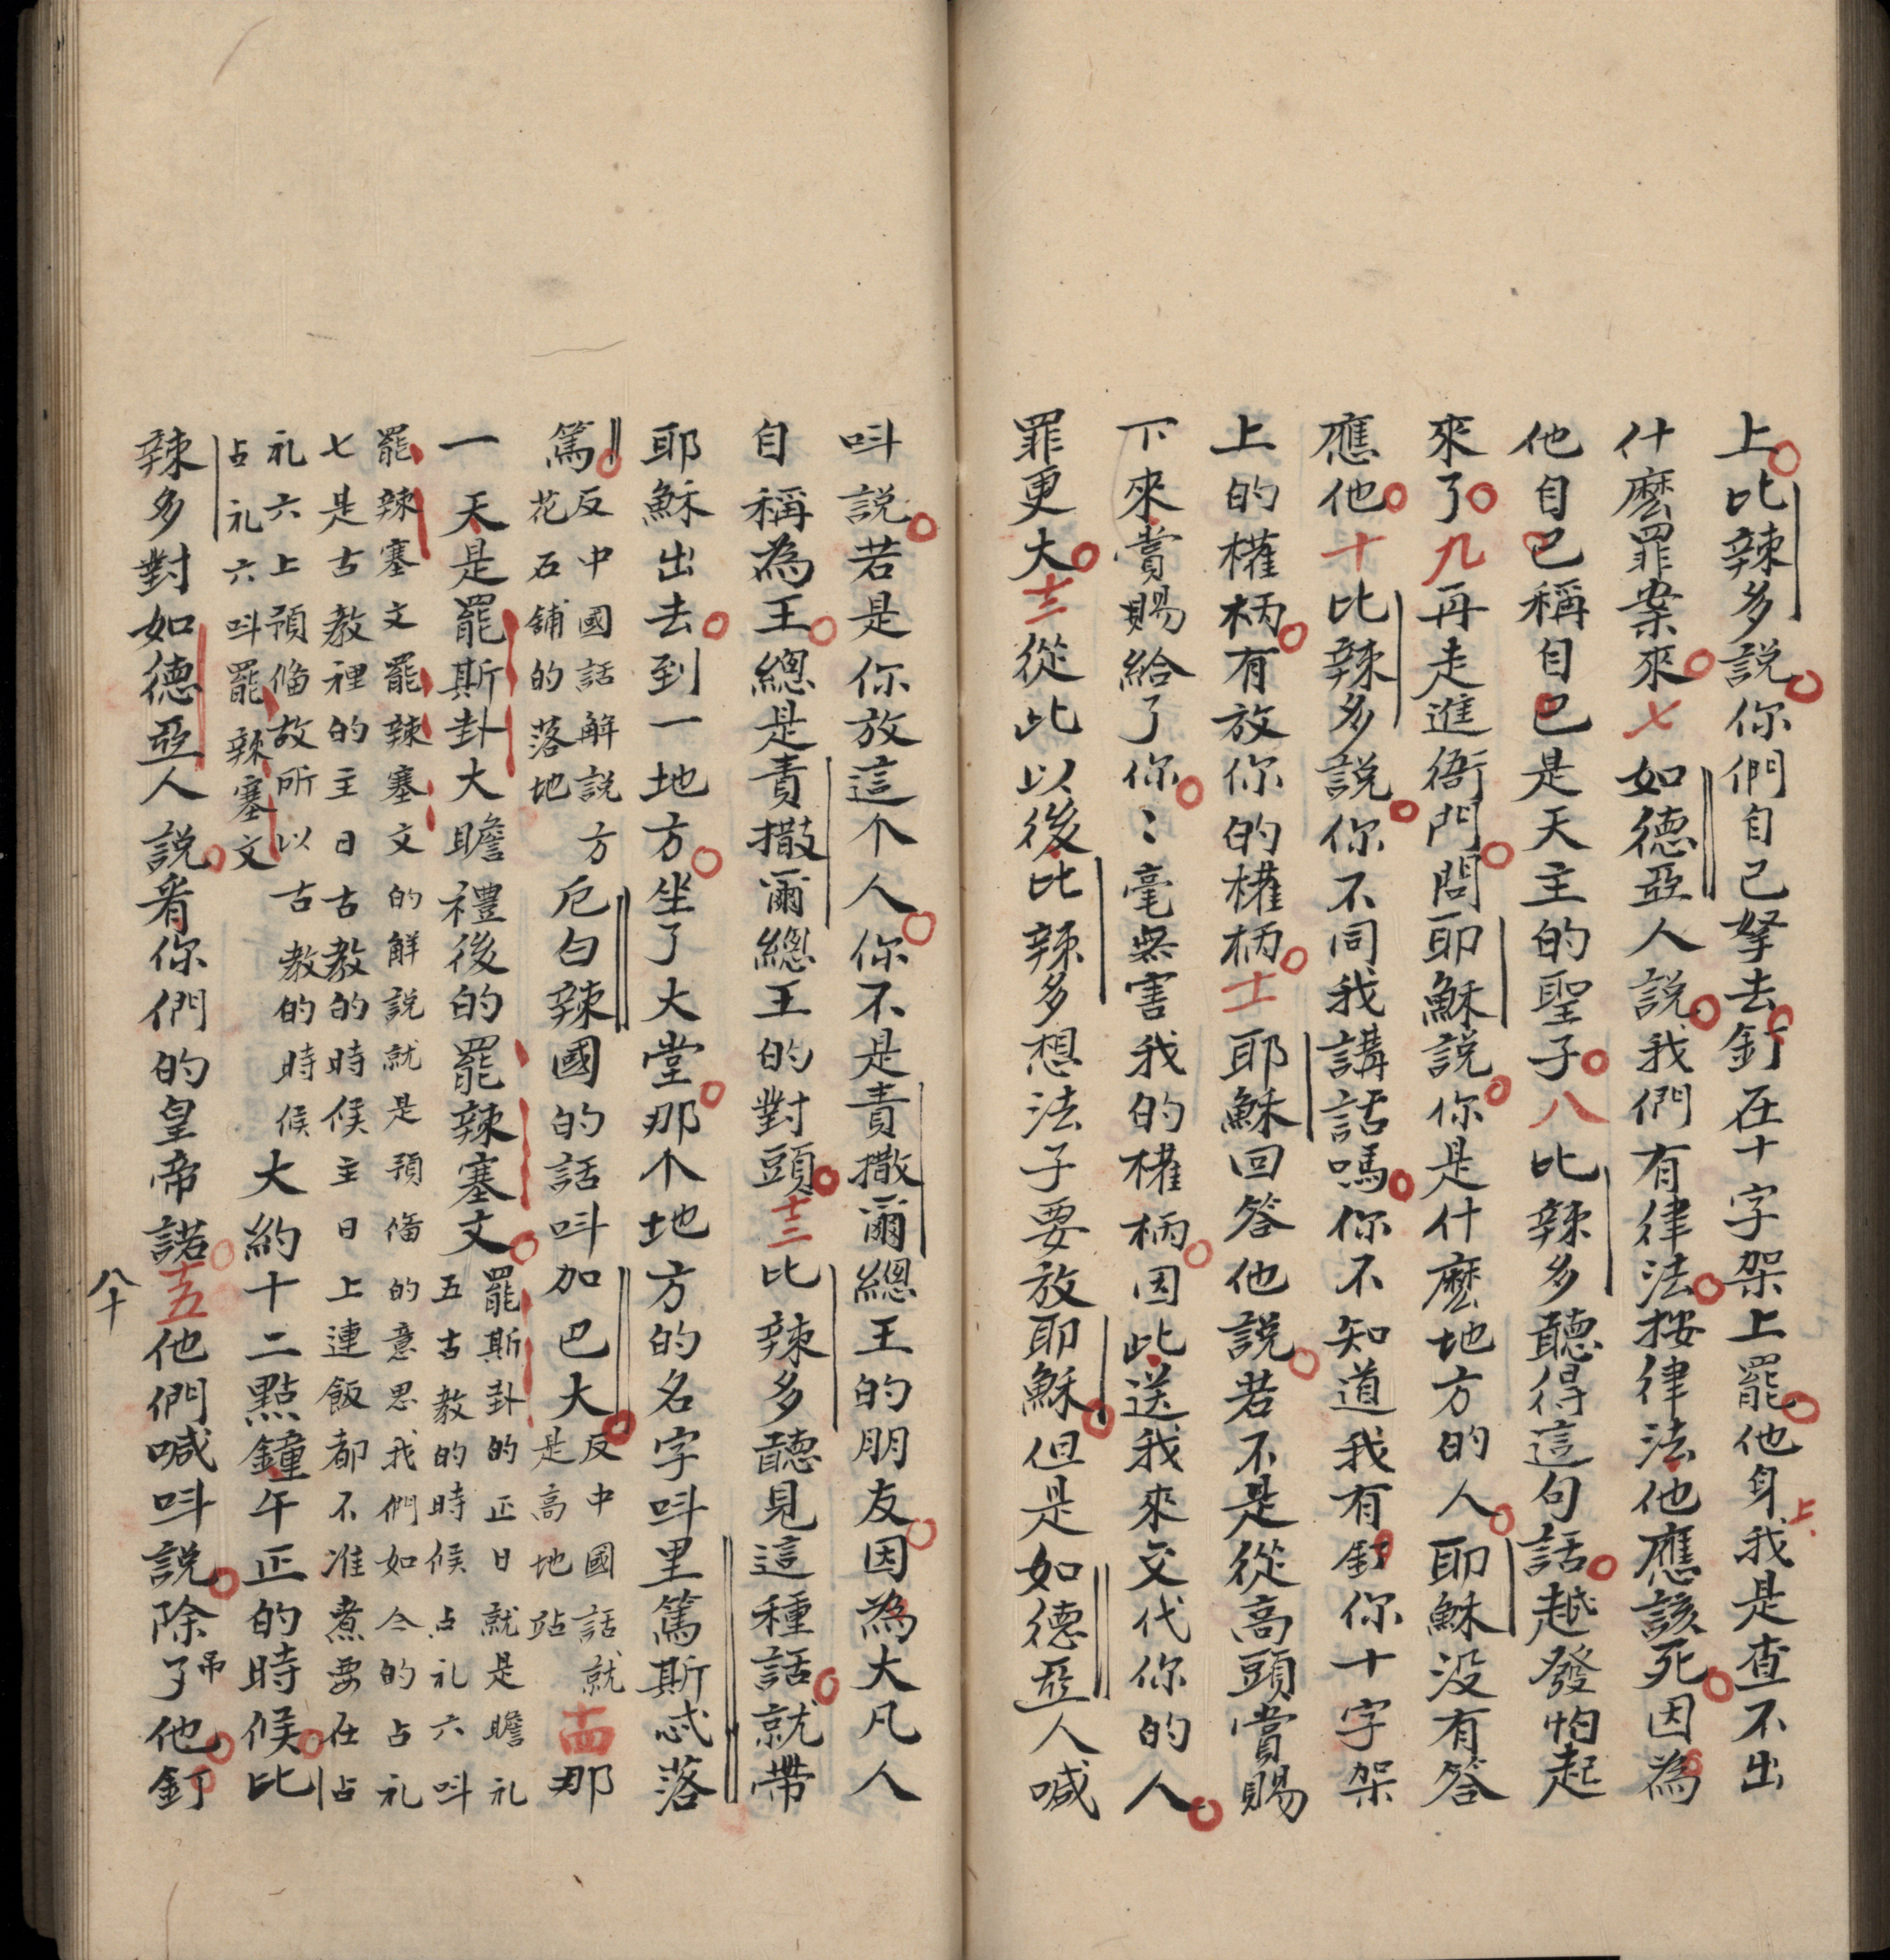 上比辣多説你們自己拏去釘在十字架上罷他身上我是查不出
什麽罪案來七如德亞人説我們有律法按律法他應該死因為
他自已稱自已是天主的聖子八比辣多聽得這句話越發怕起
來了九再走進衙門問耶穌説你是什麽地方的人耶穌没有答
應他十比辣多説你不同我講話嗎你不知道我有釘你十字架
上的權柄有放你的權柄十一耶穌回答他説若不是從高頭賞賜
下來賞賜給了你你毫無害我的權柄因此送我來交代你的人
罪更大十二從此以後比辣多想法子要放耶穌但是如德亞人喊
呌説若是你放這个人你不是責撒爾總王的朋友因為大凡人
自稱為王總是責撒爾總王的對頭十三比辣多聽見這種話就帶
耶穌出去到一地方坐了大堂那个地方的名字呌里篤斯忒落
篤反中國話解説方花石鋪的落地厄白辣國的話呌加巴大反中國話就是高地跕十四那
一天是罷斯卦大瞻禮後的罷辣塞文罷斯卦的正日就是瞻礼五古教的時候占礼六呌
罷辣塞文罷辣塞文的解説就是預備的意思我們如今的占礼
七是古教裡的主日古教的時候主日上連飯都不准煮要在占
礼六上預備故所以古教的時候占礼六呌罷辣塞文大約十二點鐘午正的時候比
辣多對如德亞人説看你們的皇帝諾十五他們喊呌説除了吊他釘
八十